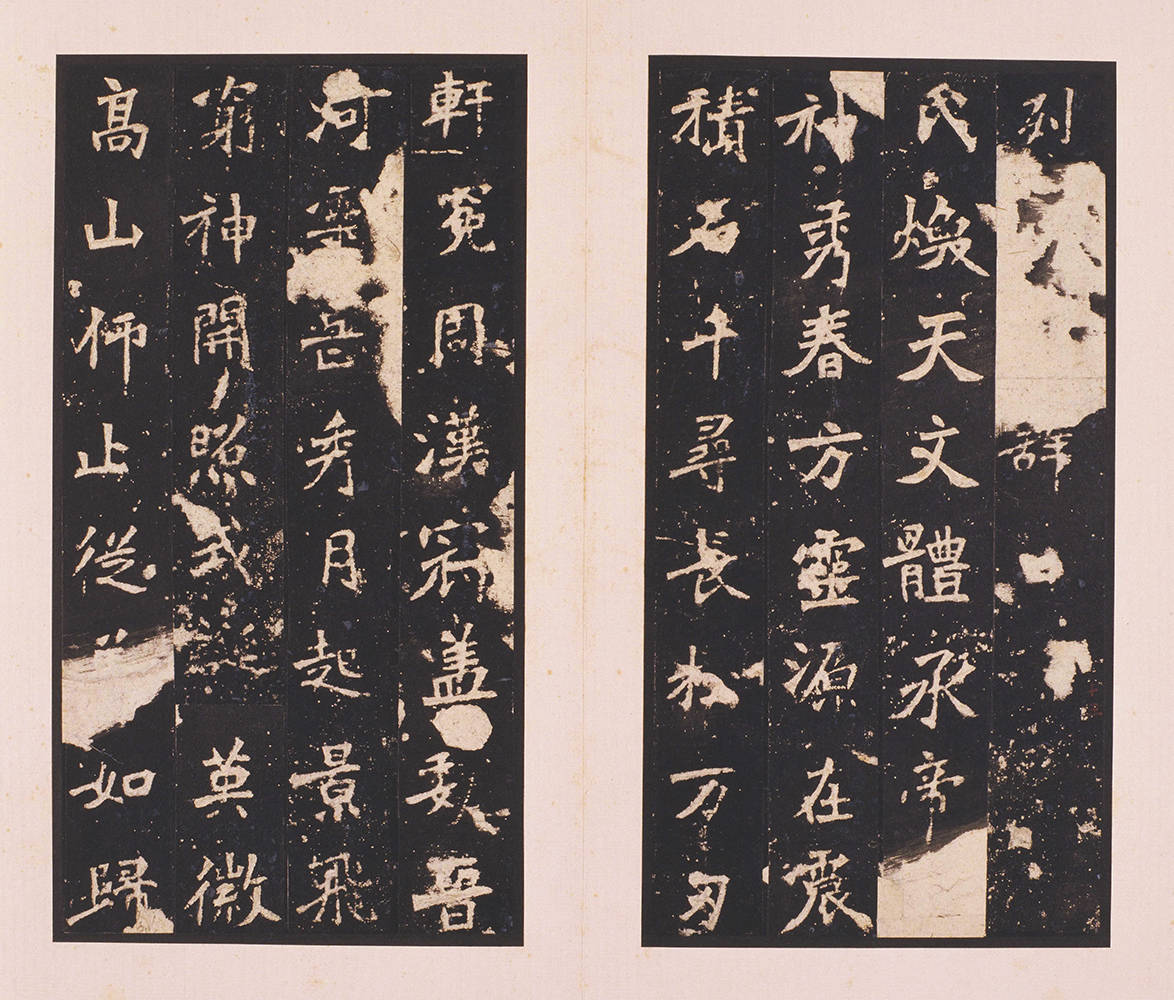 列辞曰
氏煥天文體承帝
神秀春方靈源在震
積石千尋長松万刃
軒冕周漢冠盖魏晋
河靈岳秀月起景飛
窮神開照式誕英徽
高山仰止從如歸